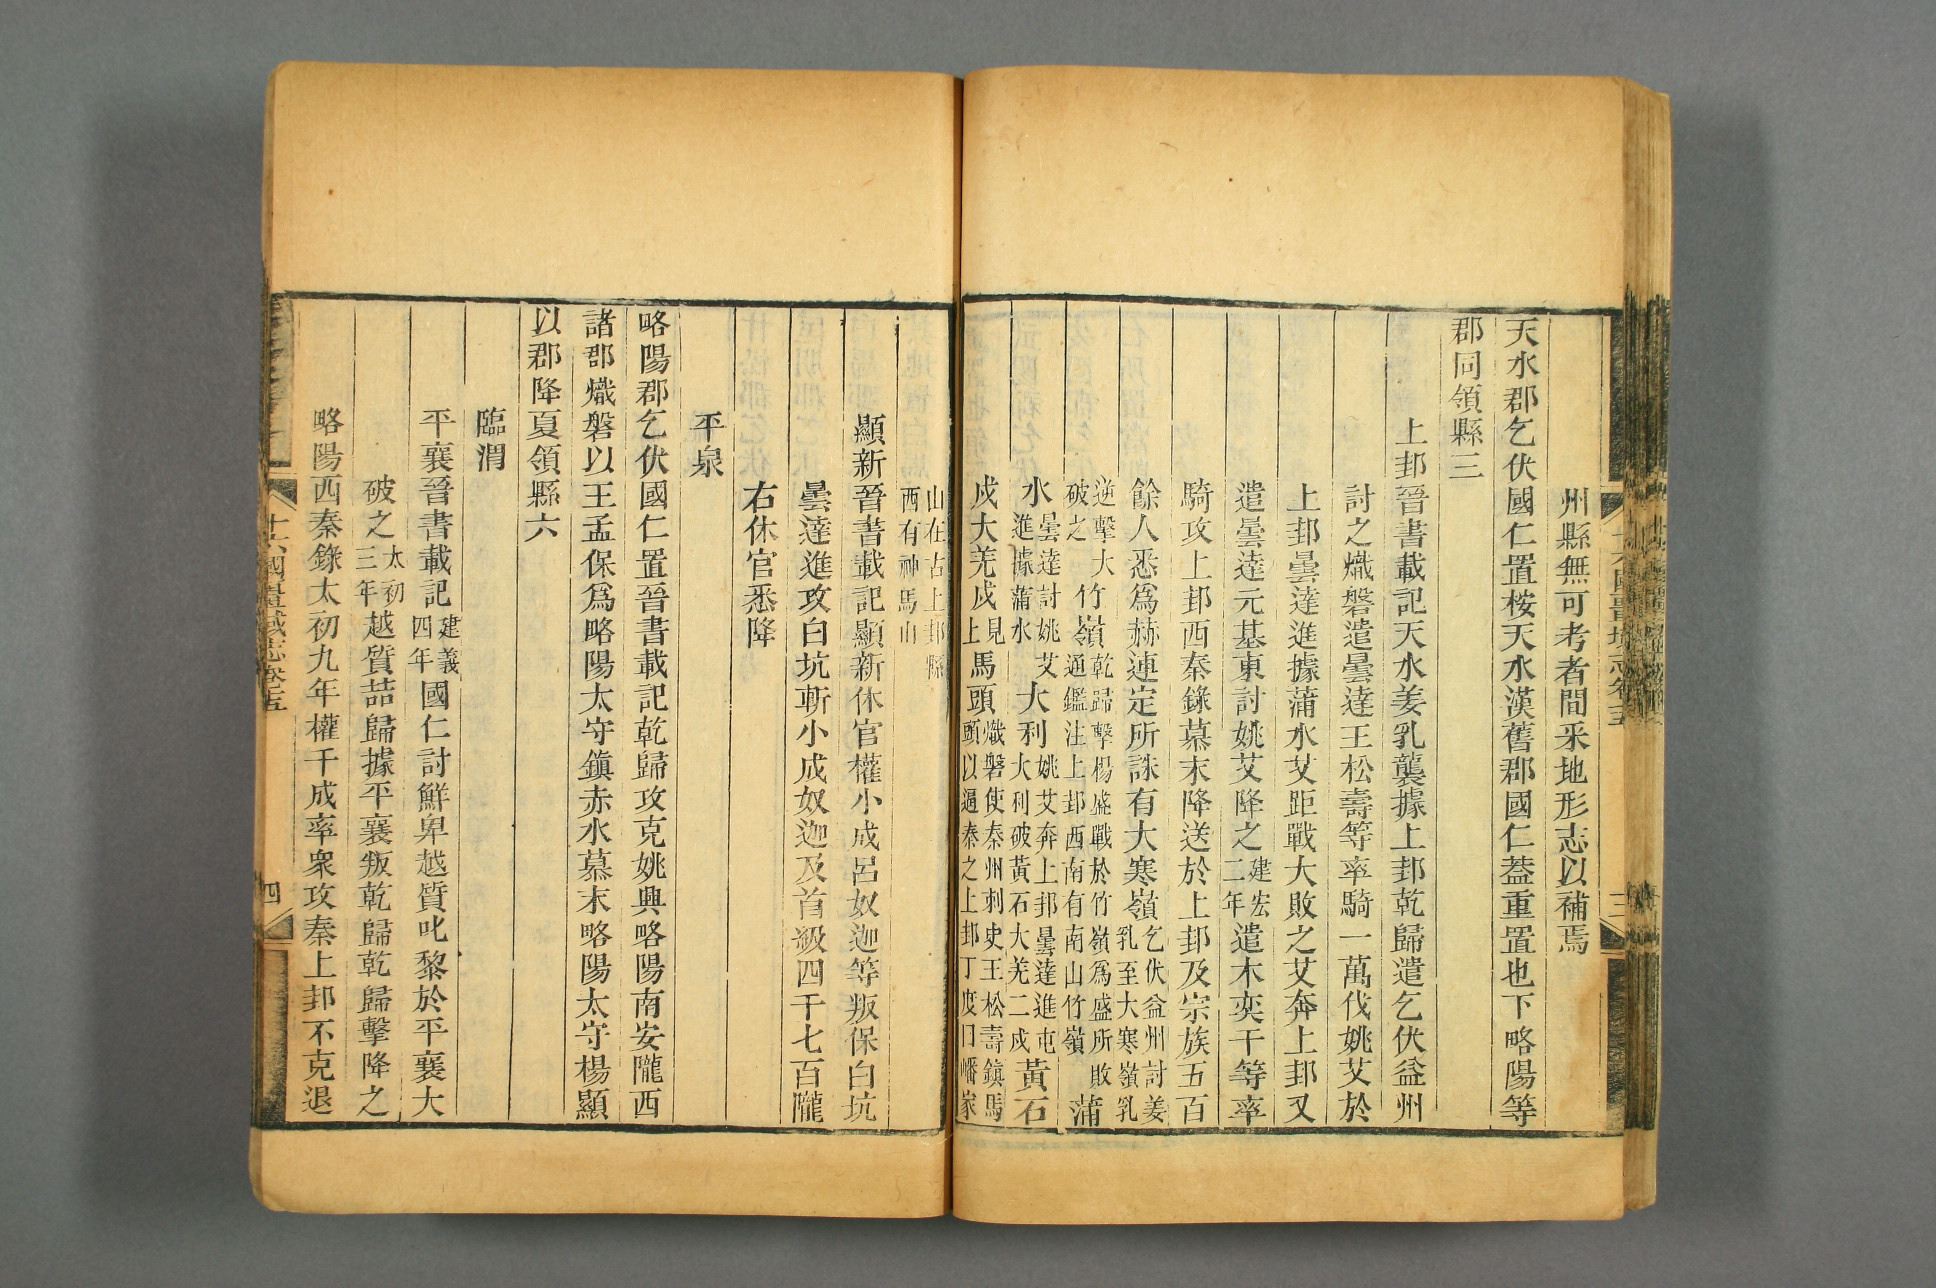 州縣無可考者間釆地形志以補焉
天水郡乞伏國仁置桉天水漢舊郡國仁葢重置也下略陽等
郡同領縣三
上邽晉書載記天水姜乳襲據上邽乾歸遣乞伏益州
討之熾磐遣曇達王松壽等率騎一萬伐姚艾於
上邽曇達進據蒲水艾距戰大敗之艾奔上邽又
遣曇達元基東討姚艾降之建宏二年遣木奕干等率
騎攻上邽西秦錄慕末降送於上邽及宗族五百
餘人悉爲赫連定所誅有大寒嶺乞伏益州討姜乳至大寒嶺乳
逆擊大破之竹嶺乾歸擊楊盛戰於竹嶺爲盛所敗通鑑注上邽西南有南山竹嶺蒲
水曇達討姚艾進據蒲水大利姚艾奔上邽曇達進屯大利破黃石大羌二戍黃石
戍大羌戍見上馬頭熾磐使秦州刺史王松壽鎭馬頭以逼秦之上邽丁度曰嶓冢
山在古上邽縣西有神馬山
顯新晉書載記顯新休官權小成呂奴迦等叛保白坑
曇達進攻白坑斬小成奴迦及首級四千七百隴
右休官悉降
平泉
略陽郡乞伏國仁置晉書載記乾歸攻克姚興略陽南安隴西
諸郡熾磐以王孟保爲略陽太守鎭赤水慕末略陽太守楊顯
以郡降夏領縣六
臨渭
平襄晉書載記建義四年國仁討鮮卑越質叱黎於平襄大
破之太初三年越質詰歸據平襄叛乾歸乾歸擊降之
略陽西秦錄太初九年權千成率衆攻秦上邽不克退
十六國疆域志卷十五
四